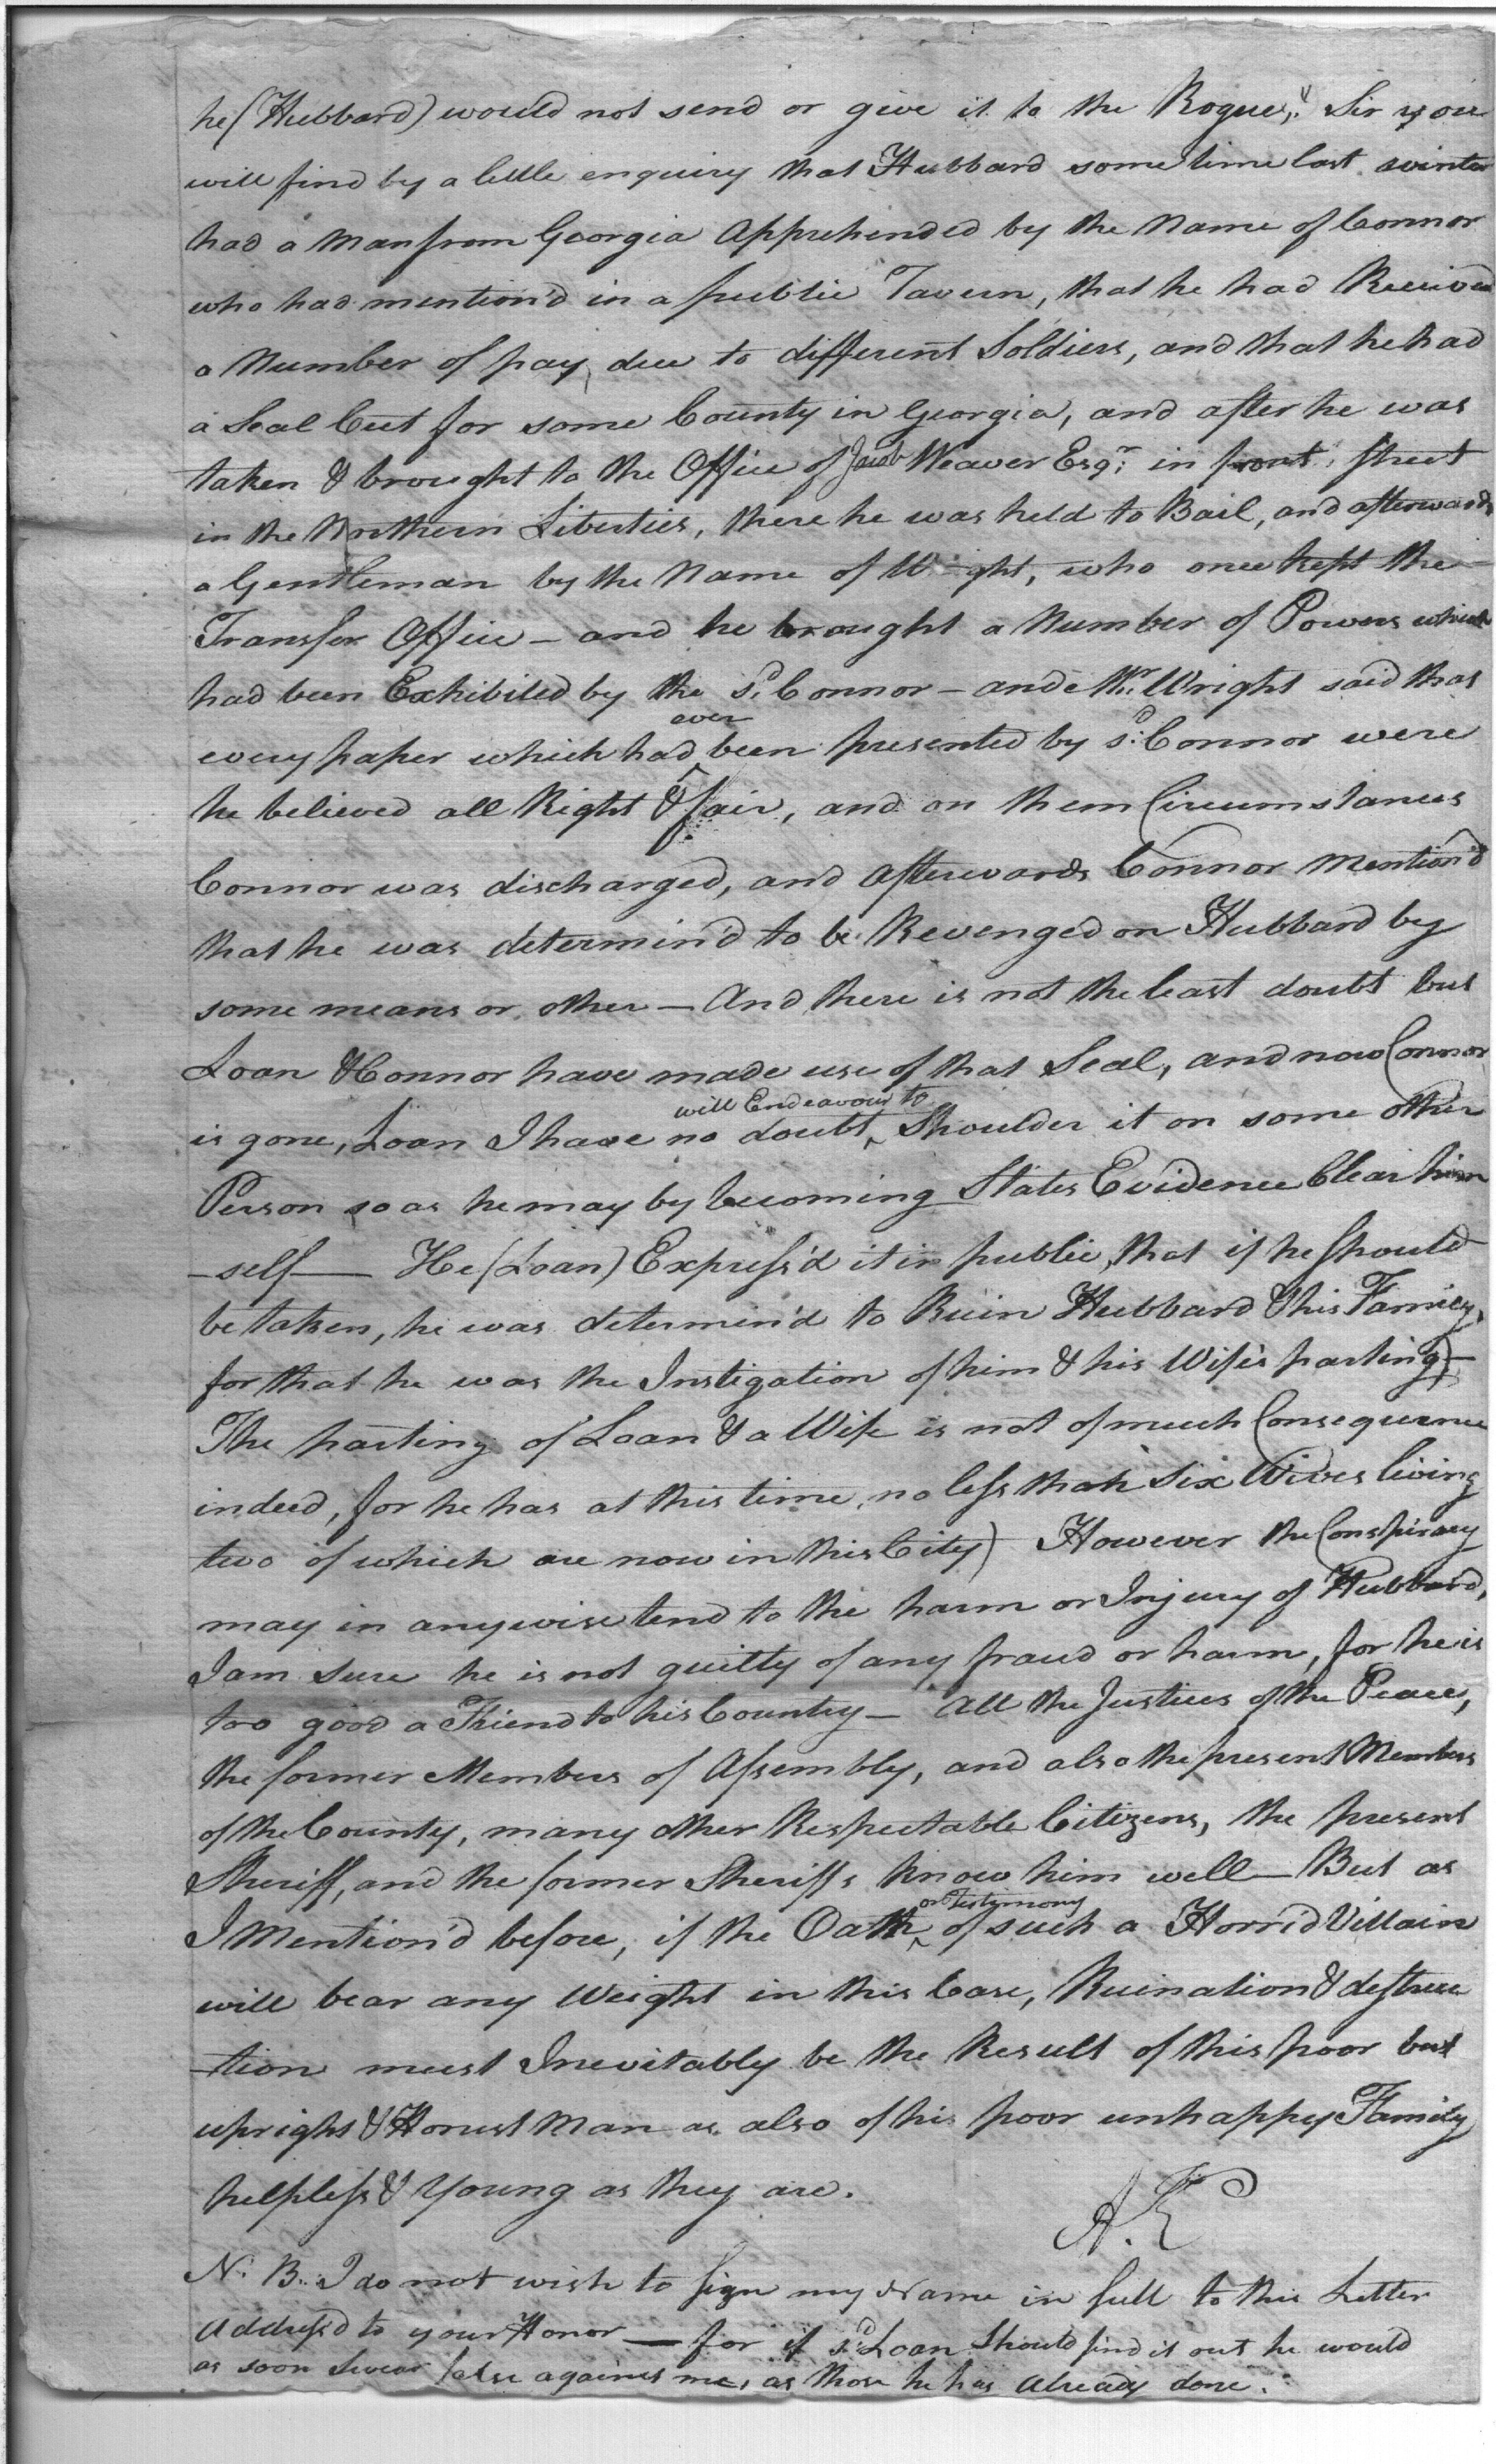 he (Hubbard) would not send or give it to the Rogue," Sir you
will find by a little enquiry that Hubbard some time last winter
had a Man from Georgia Apprehended by the Name of Connor
who had mention'd in a public Tavern, that he had Received
a Number of pay, due to different Soldiers, and that he had
a Seal Cut for some County in Georgia, and after he was
taken & brought to the Office of Jacob Weaver Esqr. in front street
in the Northern Liberties, there he was held to Bail, and afterwards
a Gentleman by the Name of Wright, who once kept the
Transfer Office — and he brought a Number of Powers which
had been Exhibited by the sd. Connor — and Mr. Wright said that
ever
every paper which had ^ been presented by sd. Connor were
he believed all Right & fair, and on them Circumstances
Connor was discharged, and Afterwards Connor Mention'd
that he was determin'd to be Revenged on Hubbard by
some means or other — And there is not the least doubt but
Loan & Connor have made use of that Seal, and now Connor
will Endeavour to
is gone, Loan I have no doubt ^ Shoulder it on some other
Person so as he may by becoming States Evidence Clear him
-self — He (Loan) Express'd it in public, that if he should
be taken, he was determin'd to Ruin Hubbard & his Family,
for that he was the Instigation of him & his Wife's parting) —
The parting of Loan & a Wife is not of much Consequence
indeed, for he has at this time, no less than Six Wives living
two of which are now in this City) However the Conspiracy
may in anywise tend to the harm or Injury of Hubbard,
I am Sure he is not guilty of any fraud or harm, for he is
too good a Friend to his Country — All the Justices of the Peace,
the former Members of Assembly, and also the present Members
of the County, many other Respectable Citizens, the present
Sheriff, and the former Sheriffs know him well — But as
or Testimony
I Mention'd before, if the Oath ^ of such a Horrid Villain
will bear any Weight in this Case, Ruination & destruc
-tion must Inevitably be the Result of this poor but
upright & Honest Man as also of his poor unhappy Family
helpless & Young as they are.
A. E
N. B. I do not wish to sign my Name in full to this Letter
Address'd to your Honor — for if sd. Loan Should find it out he would
as soon Swear false against me, as those he has Already done.